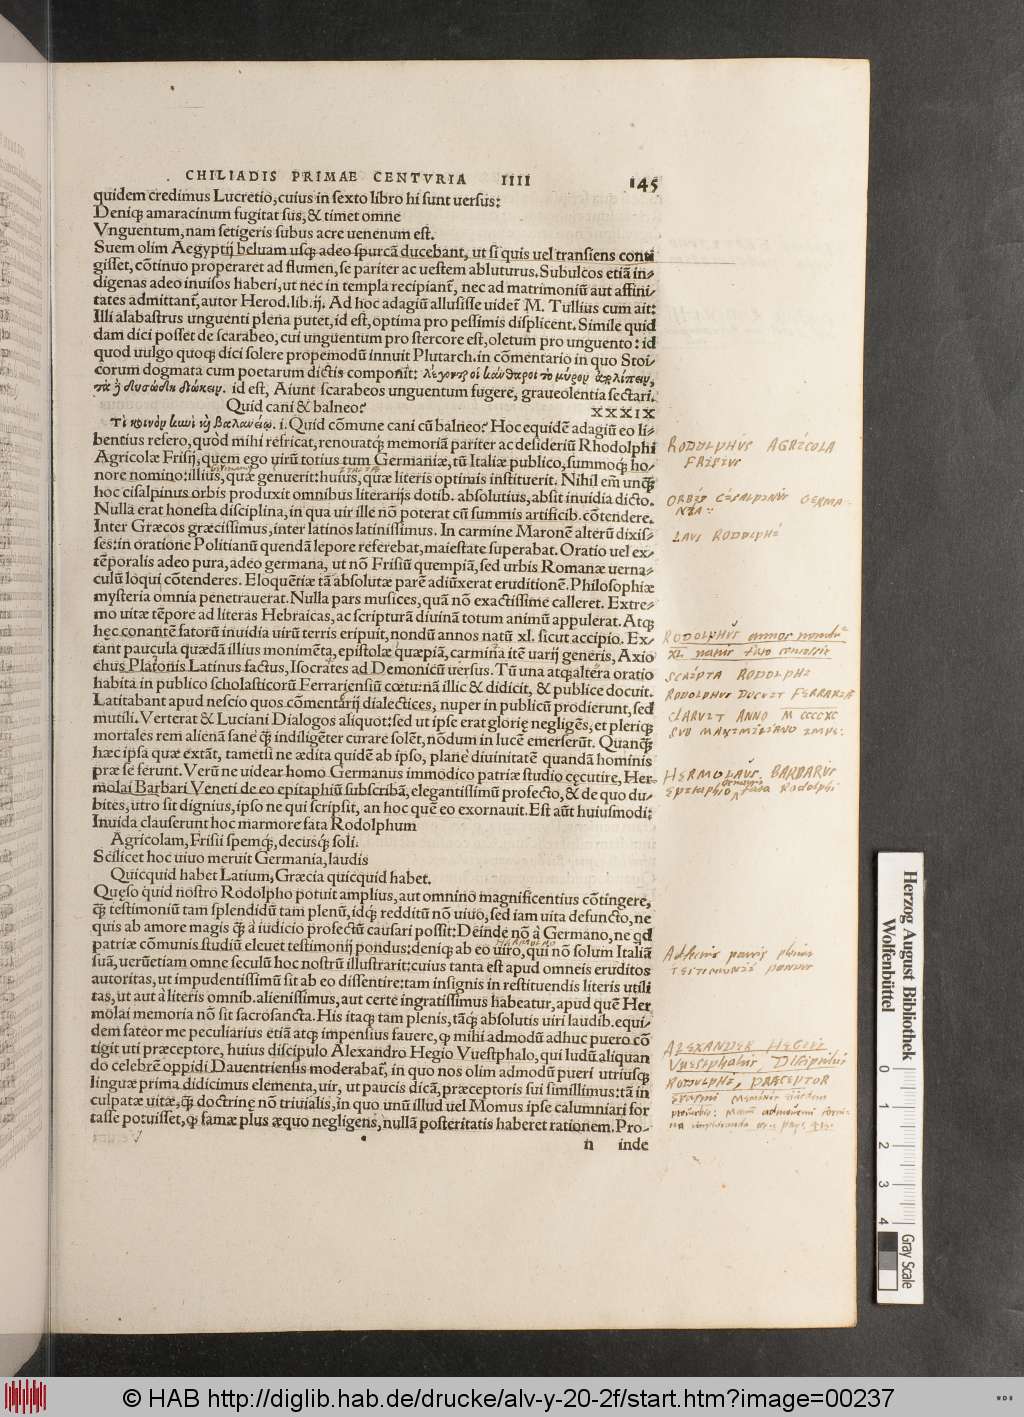 CHILIADIS PRIMAE CENTVRIA IIII 145
quidem credimus Lucretio, cuius in sexto libro hi sunt uersus:
Deniqꝫ amaracinum fugitat sus, & timet omne
Vnguentum, nam setigeris subus acre uenenum est.
Suem olim Aegyptij beluam usqꝫ adeo spurcā ducebant, ut si quis uel transiens conti
gisset, cōtinuo properaret ad flumen, se pariter ac uestem abluturus. Subulcos etiā in-
digenas adeo inuisos haberi, ut nec in templa recipiant̃, nec ad matrimoniū aut affini-
tates admittant̃, autor Herod. lib. ij. Ad hoc adagiū allusisse uidet̃ M. Tullius cum ait:
Illi alabastrus unguenti plena putet, id est, optima pro pessimis displicent. Simile quid
dam dici posset de scarabeo, cui unguentum pro stercore est, oletum pro unguento: id
quod uulgo quoqꝫ dici solere propemodū innuit Plutarch. in cōmentario in quo Stoi-
corum dogmata cum poetarum dictis componit: λέγοντες οἱ κάνθαροι τὸ μύρον
id est, Aiunt scarabeos unguentum fugere, graueolentia sectari.
Quid cani & balneo? XXXIX
Τί κοινὸν κυνὶ καὶ βαλανείῳ. i. Quid cōmune cani cū balneo? Hoc equidē adagiū eo li-
bentius refero, quòd mihi refricat, renouatqꝫ memoriā pariter ac desideriū Rhodolphi
Agricolæ Frisij, quem ego uirū totius tum Germaniæ, tū Italiæ publico, summoqꝫ ho-
nore nomino: illius, quæ genuerit: huius, quæ literis optimis instituerit. Nihil em̄ unqꝫ̄
hoc cisalpinus orbis produxit omnibus literarijs dotib. absolutius, absit inuidia dicto.
Nulla erat honesta disciplina, in qua uir ille nō poterat cū summis artificib. cōtendere.
Inter Græcos græcissimus, inter latinos latinissimus. In carmine Maronē alterū dixis-
ses: in oratione Politianū quendā lepore referebat, maiestate superabat. Oratio uel ex-
tēporalis adeo pura, adeo germana, ut nō Frisiū quempiā, sed urbis Romanæ uerna-
culū loqui cōtenderes. Eloquētiæ tā absolutæ parē adiūxerat eruditionē. Philosophiæ
mysteria omnia penetrauerat. Nulla pars musices, quā nō exactissime calleret. Extre-
mo uitæ tēpore ad literas Hebraicas, ac scripturā diuinā totum animū appulerat. Atqꝫ
hęc conantē fatorū inuidia uirū terris eripuit, nondū annos natū xl. sicut accipio. Ex-
tant paucula quædā illius monimēta, epistolæ quæpiā, carmina itē uarij generis, Axio
chus Platonis Latinus factus, Isocrates ad Demonicū uersus. Tū una atqꝫ altera oratio
habita in publico scholasticorū Ferrariensiū cœtu: nā illic & didicit, & publice docuit.
Latitabant apud nescio quos cōmentarij dialectices, nuper in publicū prodierunt, sed
mutili. Verterat & Luciani Dialogos aliquot: sed ut ipse erat glorię negligēs, et pleriqꝫ
mortales rem alienā sane qꝫ̄ indiligēter curare solēt, nōdum in lucē emerserūt. Quanqꝫ̄
hæc ipsa quæ extāt, tametsi ne ædita quidē ab ipso, plane diuinitatē quandā hominis
præ se ferunt. Verū ne uidear homo Germanus immodico patriæ studio cęcutire, Her-
molai Barbari Veneti de eo epitaphiū subscribā, elegantissimū profecto, & de quo du-
bites, utro sit dignius, ipso ne qui scripsit, an hoc quē eo exornauit. Est aūt huiusmodi:
Inuida clauserunt hoc marmore fata Rodolphum
Agricolam, Frisii spemqꝫ, decusqꝫ soli.
Scilicet hoc uiuo meruit Germania, laudis
Quicquid habet Latium, Græcia quicquid habet.
Quęso quid nostro Rodolpho potuit amplius, aut omnino magnificentius cōtingere,
qꝫ̄ testimoniū tam splendidū tam plenū, idqꝫ redditū nō uiuo, sed iam uita defuncto, ne
quis ab amore magis qꝫ̄ à iudicio profectū causari possit: Deinde nō à Germano, ne qd
patriæ cōmunis studiū eleuet testimonij pondus: deniqꝫ ab eo uiro, qui nō solum Italiā
suā, uerūetiam omne seculū hoc nostrū illustrarit: cuius tanta est apud omneis eruditos
autoritas, ut impudentissimū sit ab eo dissentire: tam insignis in restituendis literis utili
tas, ut aut à literis omnib. alienissimus, aut certe ingratissimus habeatur, apud quē Her
molai memoria nō sit sacrosancta. His itaqꝫ tam plenis, tāqꝫ absolutis uiri laudib. equi-
dem fateor me peculiarius etiā atqꝫ impensius fauere, ꝙ mihi admodū adhuc puero cō
tigit uti præceptore, huius discipulo Alexandro Hegio Vuestphalo, qui ludū aliquan
do celebrē oppidi Dauentriensis moderabat̃, in quo nos olim admodū pueri utriusqꝫ
linguæ prima didicimus elementa, uir, ut paucis dicā, præceptoris sui simillimus: tā in
culpatæ uitæ, qꝫ̄ doctrinę nō triuialis, in quo unū illud uel Momus ipse calumniari for
tasse potuisset, ꝙ famæ plus æquo negligens, nullā posteritatis haberet rationem. Pro-
n inde
RODOLPHVS AGRICOLA
FRISIVS
ORBIS CISALPINVS GERMA-
NIA
LAVS RODOLPHI
RODOLPHVS annos nondū
XL natus
SCRIPTA RODOLPHI
RODOLPHVS DOCVIT FERRARIAE
CLARVIT ANNO M CCCCXC
SVB MAXIMILIANO IMPE:
HERMOLAVS BARBARVS
Epitaphio Rodolphi
HERMOLAO
ALEXANDER HEGIVS
Vuestphalus, Discipulus
RODOLPHI, PRAECEPTOR
Erasmi
© HAB http://diglib.hab.de/drucke/alv-y-20-2f/start.htm?image=00237
Herzog August Bibliothek
Wolfenbüttel
0 1 2 3 4
Gray Scale